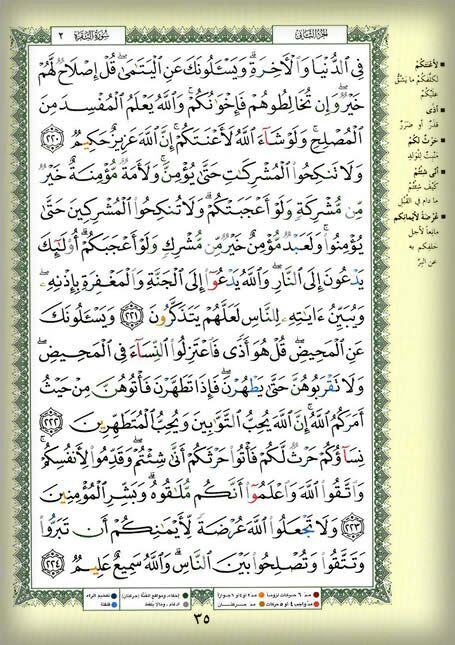 الجزء الثاني
سورة البقرة ٢
فِي ٱلدُّنْيَا وَٱلْأَخِرَةِ ۗ وَيَسْـَٔلُونَكَ عَنِ ٱلْيَتَـٰمَىٰ ۖ قُلْ إِصْلَاحٌ لَّهُمْ
خَيْرٌ ۖ وَإِن تُخَالِطُوهُمْ فَإِخْوَٰنُكُمْ ۚ وَٱللَّهُ يَعْلَمُ ٱلْمُفْسِدَ مِنَ
ٱلْمُصْلِحِ ۚ وَلَوْ شَآءَ ٱللَّهُ لَأَعْنَتَكُمْ ۚ إِنَّ ٱللَّهَ عَزِيزٌ حَكِيمٌ ٢٢٠
وَلَا تَنكِحُوا۟ ٱلْمُشْرِكَـٰتِ حَتَّىٰ يُؤْمِنَّ ۚ وَلَأَمَةٌ مُّؤْمِنَةٌ خَيْرٌ
مِّن مُّشْرِكَةٍ وَلَوْ أَعْجَبَتْكُمْ ۗ وَلَا تُنكِحُوا۟ ٱلْمُشْرِكِينَ حَتَّىٰ
يُؤْمِنُوا۟ ۚ وَلَعَبْدٌ مُّؤْمِنٌ خَيْرٌ مِّن مُّشْرِكٍ وَلَوْ أَعْجَبَكُمْ ۗ أُو۟لَـٰٓئِكَ
يَدْعُونَ إِلَى ٱلنَّارِ ۖ وَٱللَّهُ يَدْعُوٓا۟ إِلَى ٱلْجَنَّةِ وَٱلْمَغْفِرَةِ بِإِذْنِهِۦ ۖ
وَيُبَيِّنُ ءَايَـٰتِهِۦ لِلنَّاسِ لَعَلَّهُمْ يَتَذَكَّرُونَ ٢٢١ وَيَسْـَٔلُونَكَ
عَنِ ٱلْمَحِيضِ ۖ قُلْ هُوَ أَذًى فَٱعْتَزِلُوا۟ ٱلنِّسَآءَ فِي ٱلْمَحِيضِ ۖ
وَلَا تَقْرَبُوهُنَّ حَتَّىٰ يَطْهُرْنَ ۖ فَإِذَا تَطَهَّرْنَ فَأْتُوهُنَّ مِنْ حَيْثُ
أَمَرَكُمُ ٱللَّهُ ۚ إِنَّ ٱللَّهَ يُحِبُّ ٱلتَّوَّٰبِينَ وَيُحِبُّ ٱلْمُتَطَهِّرِينَ ٢٢٢
نِسَآؤُكُمْ حَرْثٌ لَّكُمْ فَأْتُوا۟ حَرْثَكُمْ أَنَّىٰ شِئْتُمْ ۖ وَقَدِّمُوا۟ لِأَنفُسِكُمْ ۚ
وَٱتَّقُوا۟ ٱللَّهَ وَٱعْلَمُوٓا۟ أَنَّكُم مُّلَـٰقُوهُ ۗ وَبَشِّرِ ٱلْمُؤْمِنِينَ
٢٢٣ وَلَا تَجْعَلُوا۟ ٱللَّهَ عُرْضَةً لِّأَيْمَـٰنِكُمْ أَن تَبَرُّوا۟
وَتَتَّقُوا۟ وَتُصْلِحُوا۟ بَيْنَ ٱلنَّاسِ ۗ وَٱللَّهُ سَمِيعٌ عَلِيمٌ ٢٢٤
لأعنتكم
لكلفكم ما يشق
عليكم
أذى
قذر أو ضرر
حرث لكم
منبت للولد
أنى شئتم
كيف شئتم
ما دام في القبل
عرضة لأيمانكم
مانعا لأجل
حلفكم به
عن البر
مد ٦ حركات لزوما
مد ٢ أو ٤ أو ٦ جوازا
إخفاء، ومواقع الغنة (حركتان)
تفخيم الراء
مد واجب ٤ أو ٥ حركات
مد حركتان
ادغام، وما لا يلفظ
قلقلة
٣٥